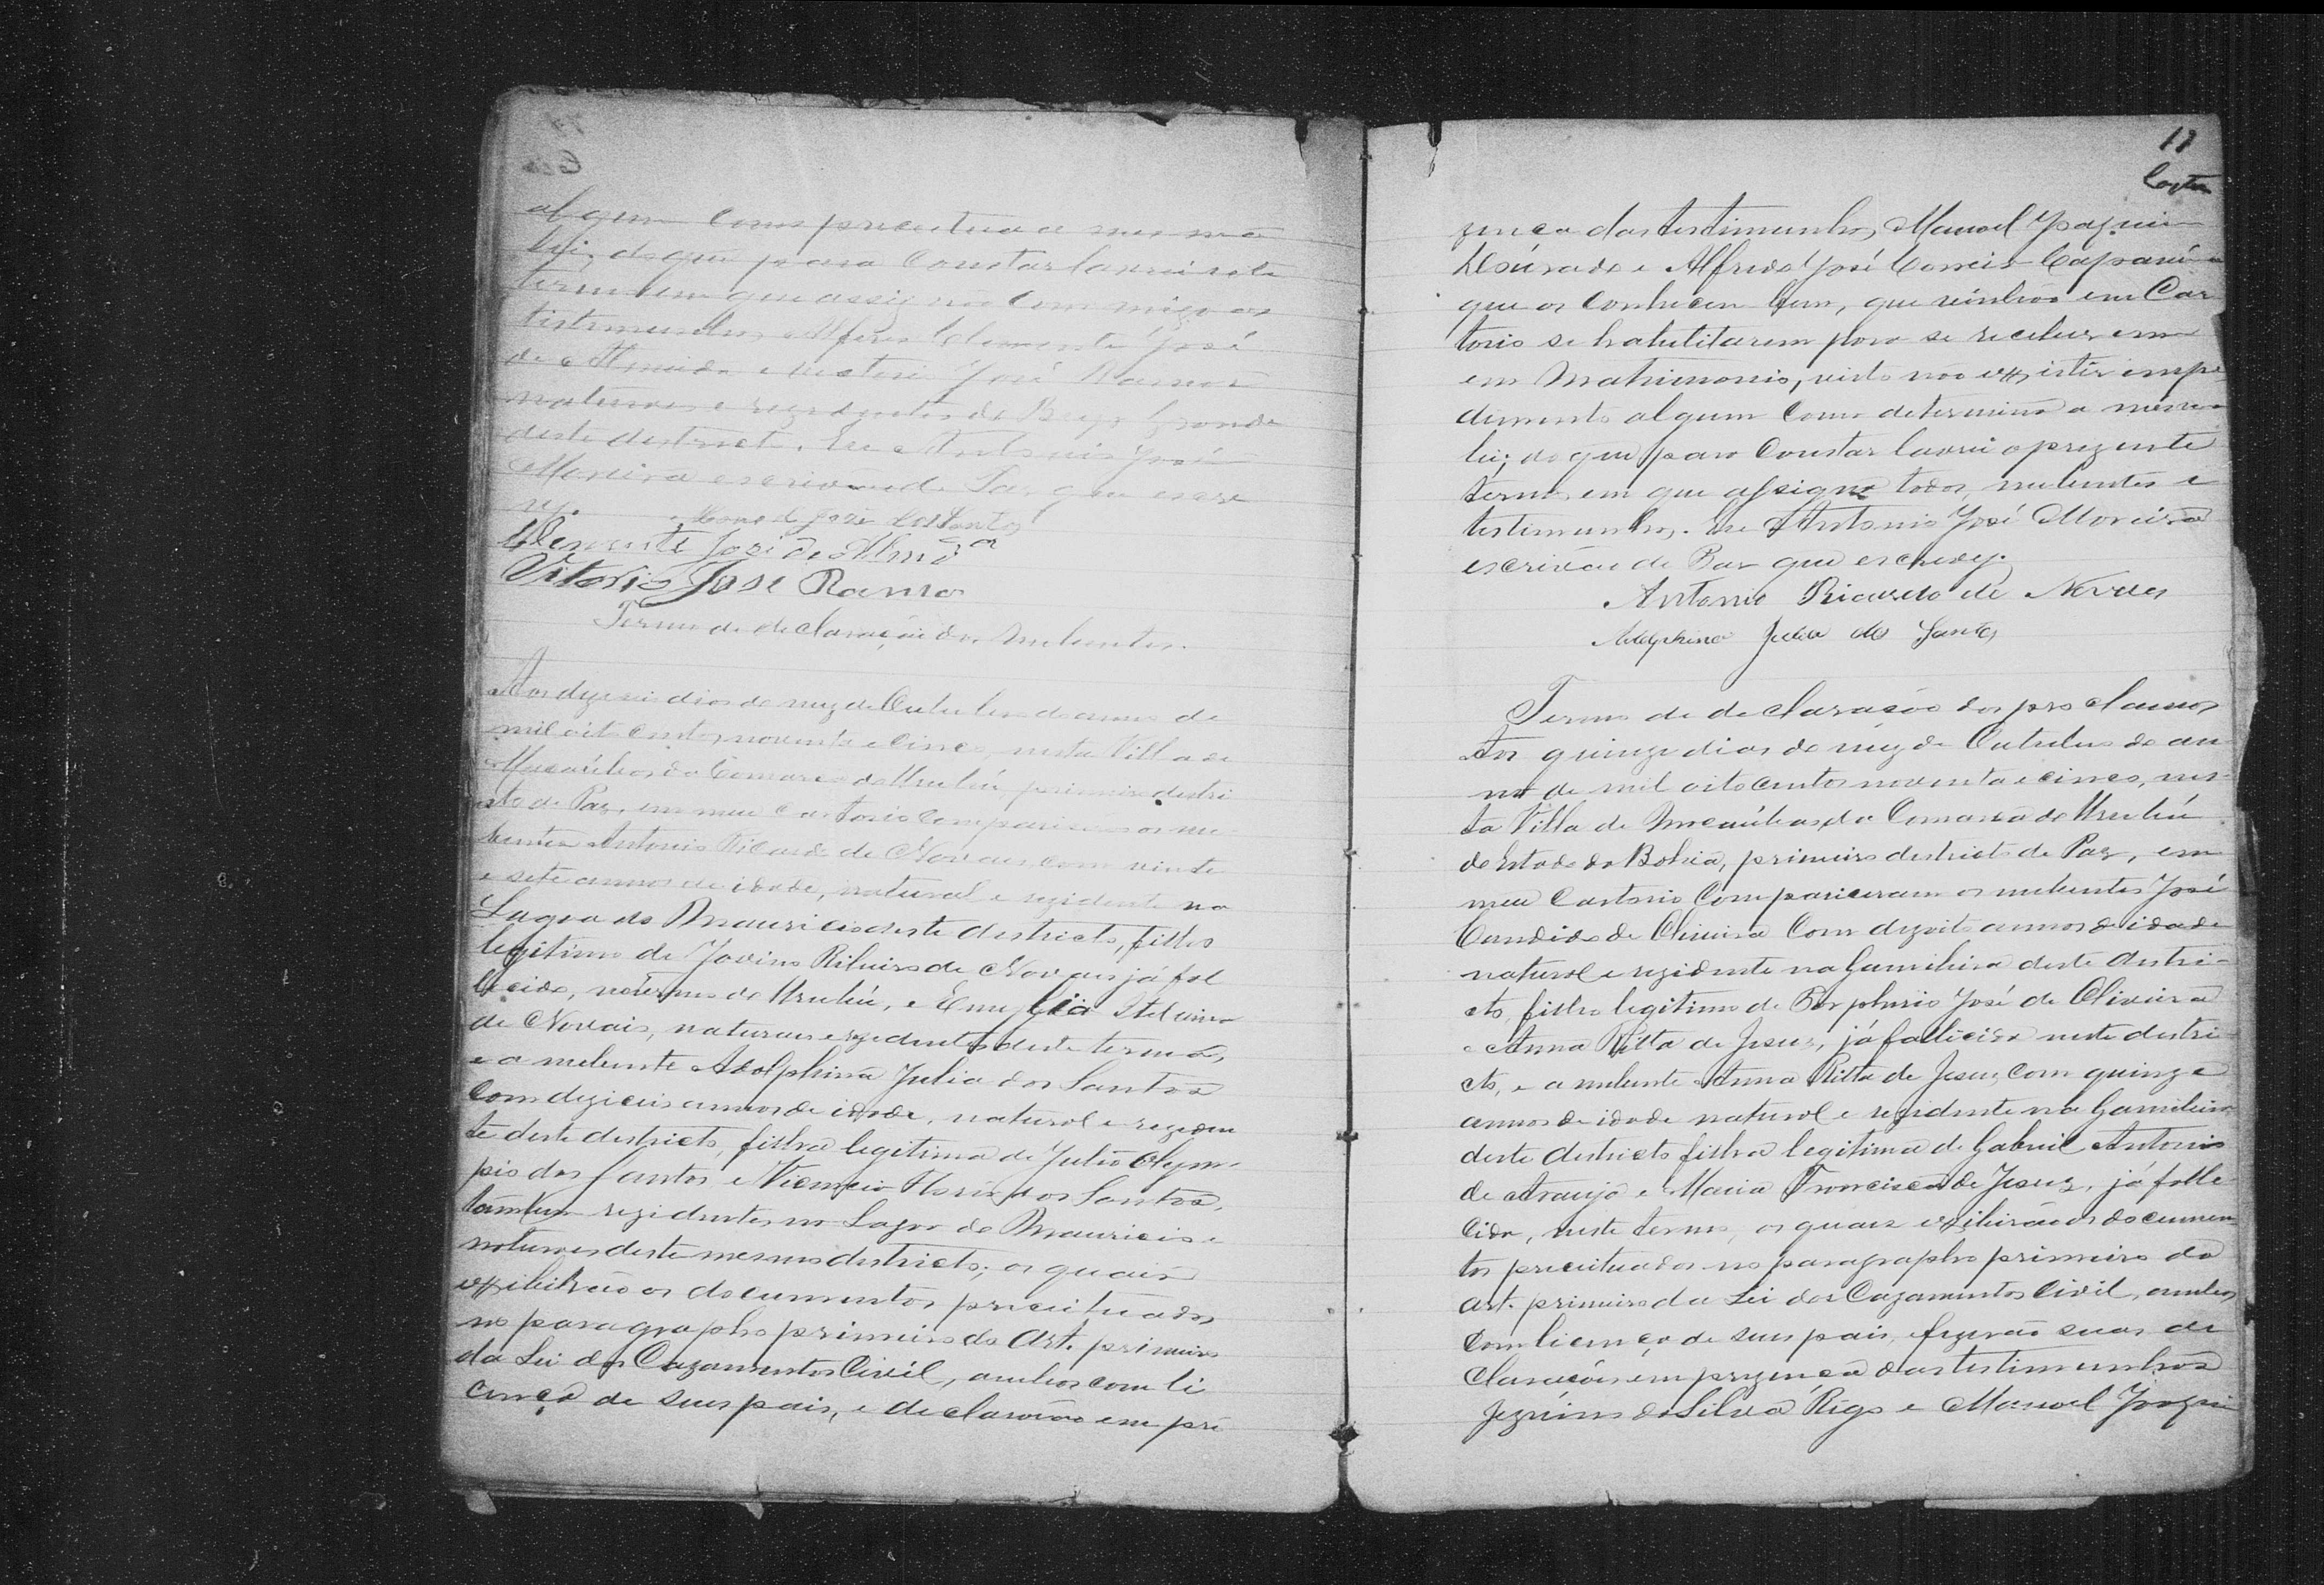 algum como preceitua a mesma
lei; do que para constar lavrei este
termo em que assignão com migo as
testemunhas Alferes Clemente José
de Almeida e Victorio José Ramos
naturaes e rezidentes do Brejo Grande
deste destricto. Eu Antonio José
Moreira escrivão de Paz que escre
vy. Manoel José dos Santos
Clemente José de Almda
Vitorio Jose Ramos
Termo de declaração dos nubentes.
Aos dezeseis dias do mez de Outubro do anno de
mil oito centos noventa e cinco, nesta Villa de
Macaúbas da Comarca do Urubú, primeiro destri
cto de Paz, em meu Cartorio compariceram os nu
bentes Antonio Ricardo de Novaes com vinte
e sete annos de idade, natural e rezidente na
Lagoa do Mauricio deste destricto, filho
legitimo de Jovino Ribeiro de Novaes já fal
licido, no termo do Urubú, e Emygia
de Novais, naturaes e rezidentes deste termo,
e a nubente Adolphina Julia dos Santos
com deziceis annos de idade, natural e reziden
te deste destricto, filha legitima de Julio Olym
pio dos Santos e Vicencia Maria dos Santos,
tambem rezidentes na Lagoa do Mauricio e
naturaes deste mesmo destricto; os quais
exzibirão os documentos preceituados
no paragrapho primeiro do Art. primeiro
da Lei dos Cazamentos Civil, ambos com li
cença de seus pais, e declararão em pre
11
Costa
zença das testimunhas Manoel Joaquim
Dourado e Alfredo José Correia
que os conhecem bem, que vinhão em Car
torio se habelitarem para se receber em
em Matrimonio, visto não exzistir empe
demento algum como determina a mesma
lei; do que para constar lavrei o prezente
termo em que assigna todos, nubentes e
testimunhas. Eu Antonio José Moreira
escrivão de Paz que escrevy.
Antonio Ricardo de Novaes
Adolphina Julia dos Santos
Termo de declaração dos proclamos
Aos quinze dias do mez de Outubro do an
no de mil oito centos noventa e cinco, nes
ta Villa de Macaúbas da Comarca do Urubú
do Estado da Bahia, primeiro destricto de Paz, em
meu Cartorio compariceram os nubentes José
Candido de Oliveira com dezoito annos de idade
natural e rezidente na Gamilleira deste destri
cto, filho legitimo de Porphirio José de Oliveira
e Anna Ritta de Jesus, já fallicida neste destri
cto, e a nubente Anna Ritta de Jesus, com quinze
annos de idade natural e rezidente na Gamilleira
deste destricto filha legitima de Gabriel Antonio
de Araujo e Maria Francisca de Jesus, já falle
cida, neste termo, os quais exzibirão os documen
tos preceituados no paragrapho primeiro do
Art. primeiro da Lei dos Cazamentos Civil, ambos
com licença de seus pais, e fizerão suas de
claraçois em prezença das testimunhas
Jezuino da Silva Rego e Manoel Joaquim